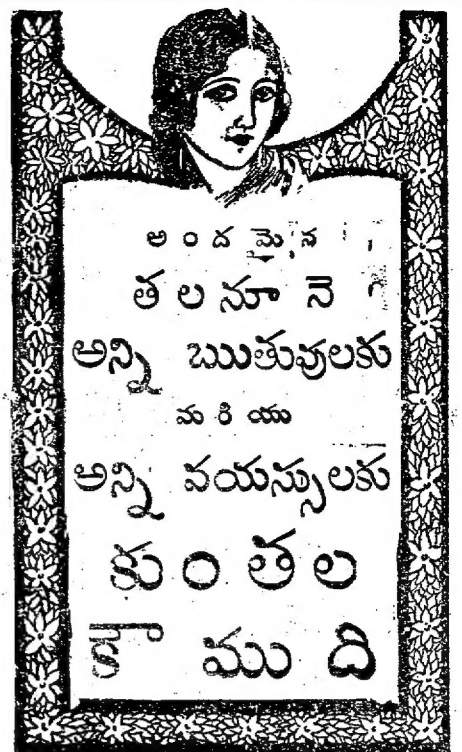 అందమైన
తలనూనె
అన్ని ఋతువులకు
మరియు
అన్ని వయస్సులకు
కుంతల
కౌముది